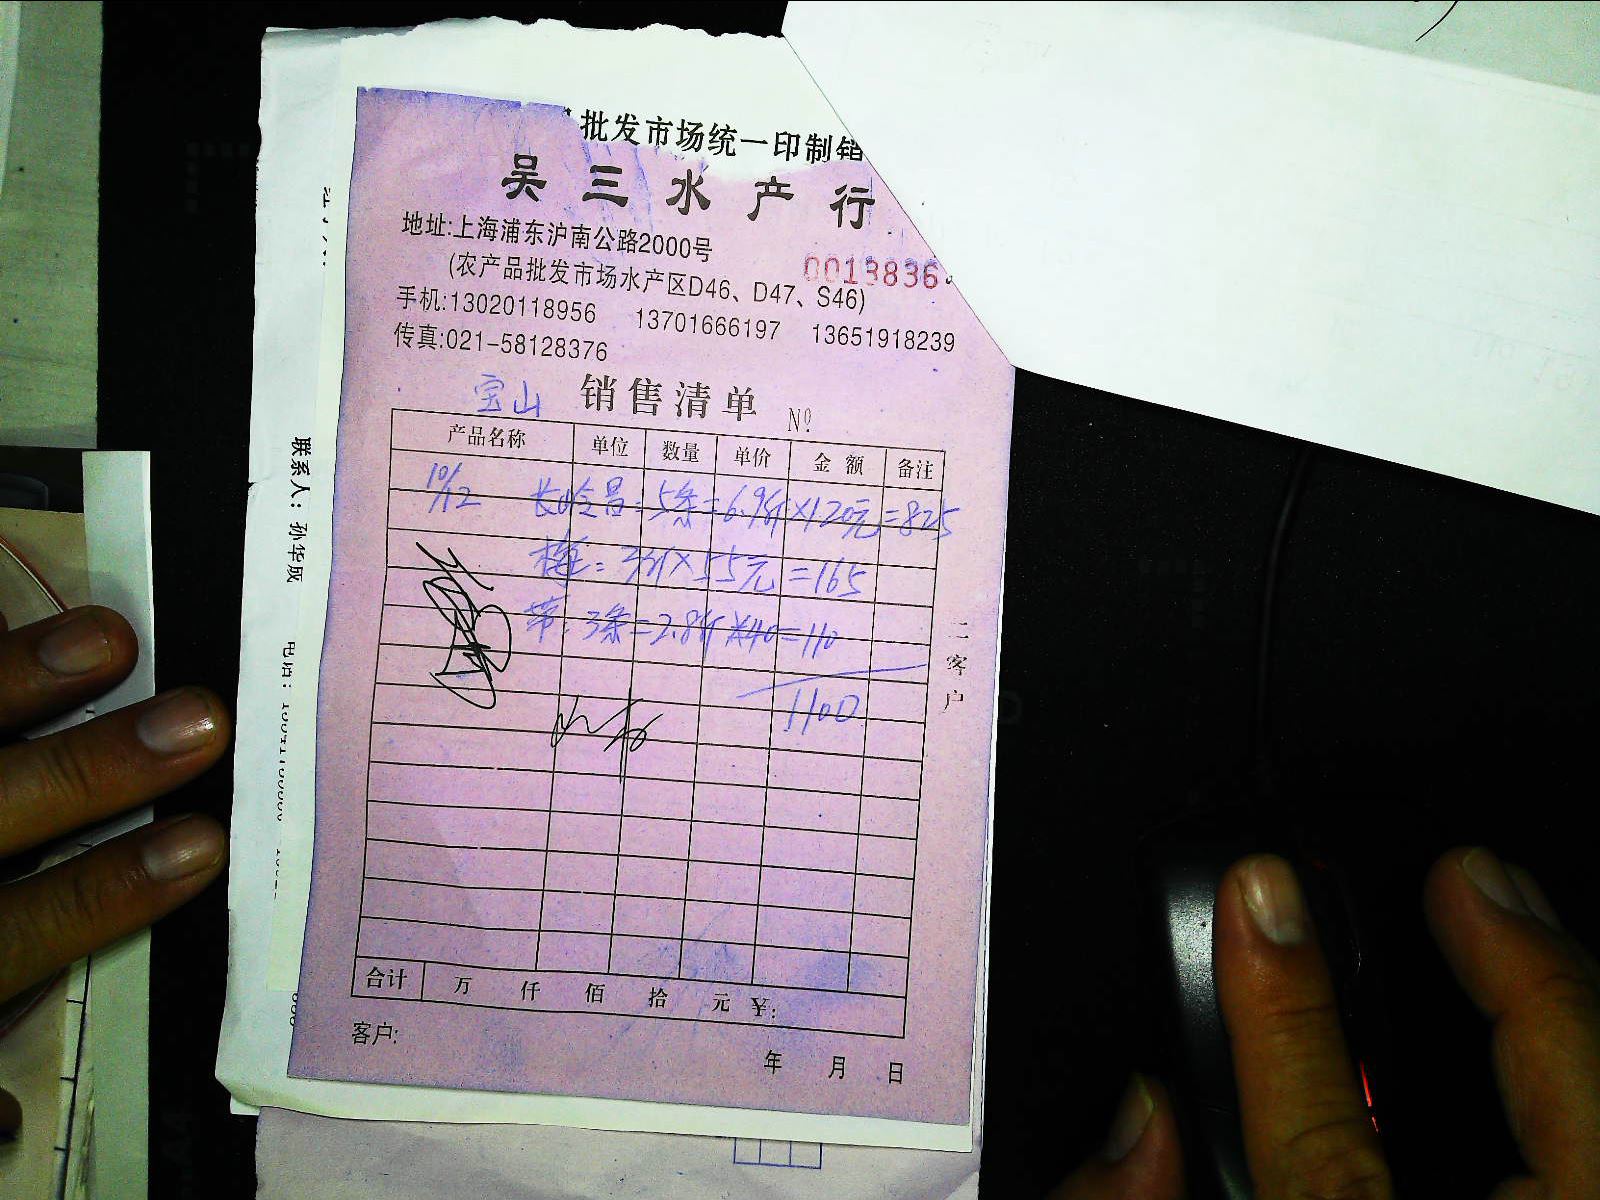 批发市场统一印制销
吴三水产行
地址:上海浦东沪南公路2000号
0013836
(农产品批发市场水产区D46、D47、S46)
手机:13020118956 13701666197 13651918239
传真:021-58128376
宝山 销售清单 №
产品名称 单位 数量 单价 金额 备注
10/12 长岭昌:5条=6.9斤×120元=825
梅:3斤×55元=165
带:3条=2.8斤×40=110
1100
二客户
合计 万 仟 佰 拾 元 ¥:
客户:
年 月 日
联系人:孙华成
电话: